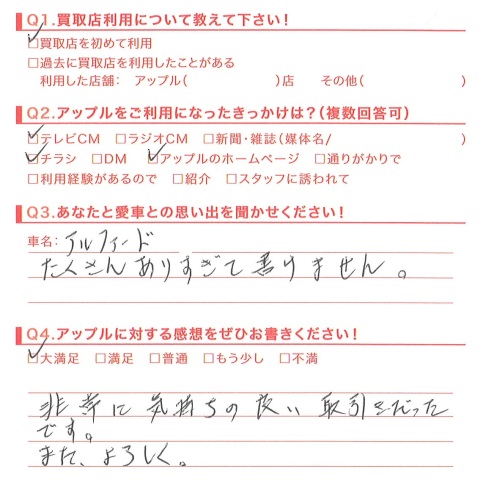 Q1.買取店利用について教えて下さい!
☑買取店を初めて利用
□過去に買取店を利用したことがある
利用した店舗： アップル( )店 その他( )
Q2.アップルをご利用になったきっかけは?(複数回答可)
☑テレビCM □ラジオCM □新聞・雑誌(媒体名/ )
☑チラシ □DM ☑アップルのホームページ □通りがかりで
□利用経験があるので □紹介 □スタッフに誘われて
Q3.あなたと愛車との思い出を聞かせください!
車名：アルファード
たくさんありすぎて書けません。
Q4.アップルに対する感想をぜひお書きください!
☑大満足 □満足 □普通 □もう少し □不満
非常に気持ちの良い取引きだった
です。
また、よろしく。